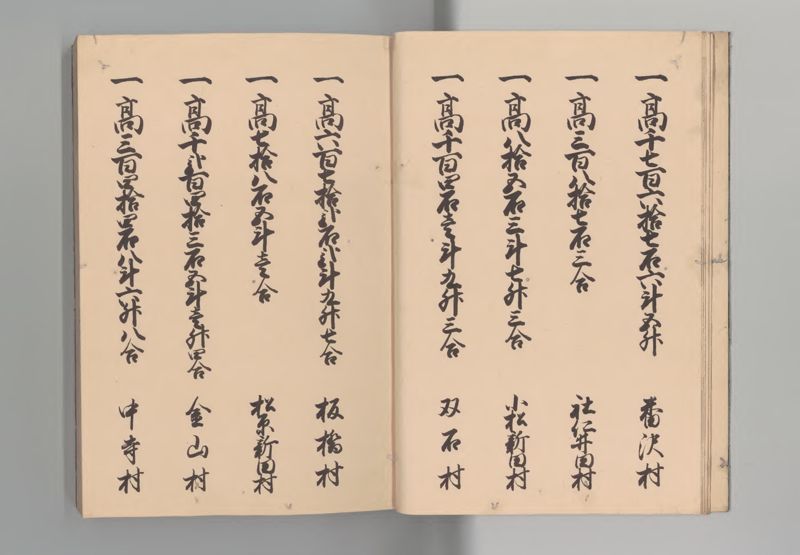 一高千七百六拾七石六斗五升 番沢村
一高三百八拾七石三合 社仁井田村
一高八拾五石三斗七升三合 小松新田村
一高千百四石壱斗九升三合 双石村
一高六百七拾弐石弐斗九升七合 板橋村
一高七拾八石五斗壱合 松原新田村
一高千弐百四拾三石五斗壱升四合 金山村
一高三百四拾四石八斗六升八合 中寺村